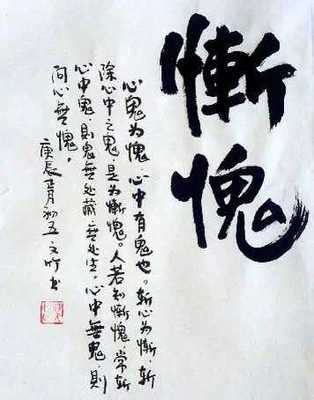 慚
愧
心鬼为愧,心中有鬼也。斬心为慚,斬
除心中之鬼,是为慚愧。人若知慚愧,常斬
心中鬼,則鬼無处藏,無处生,心中無鬼,則
问心無愧。
庚辰正月初五 文竹书